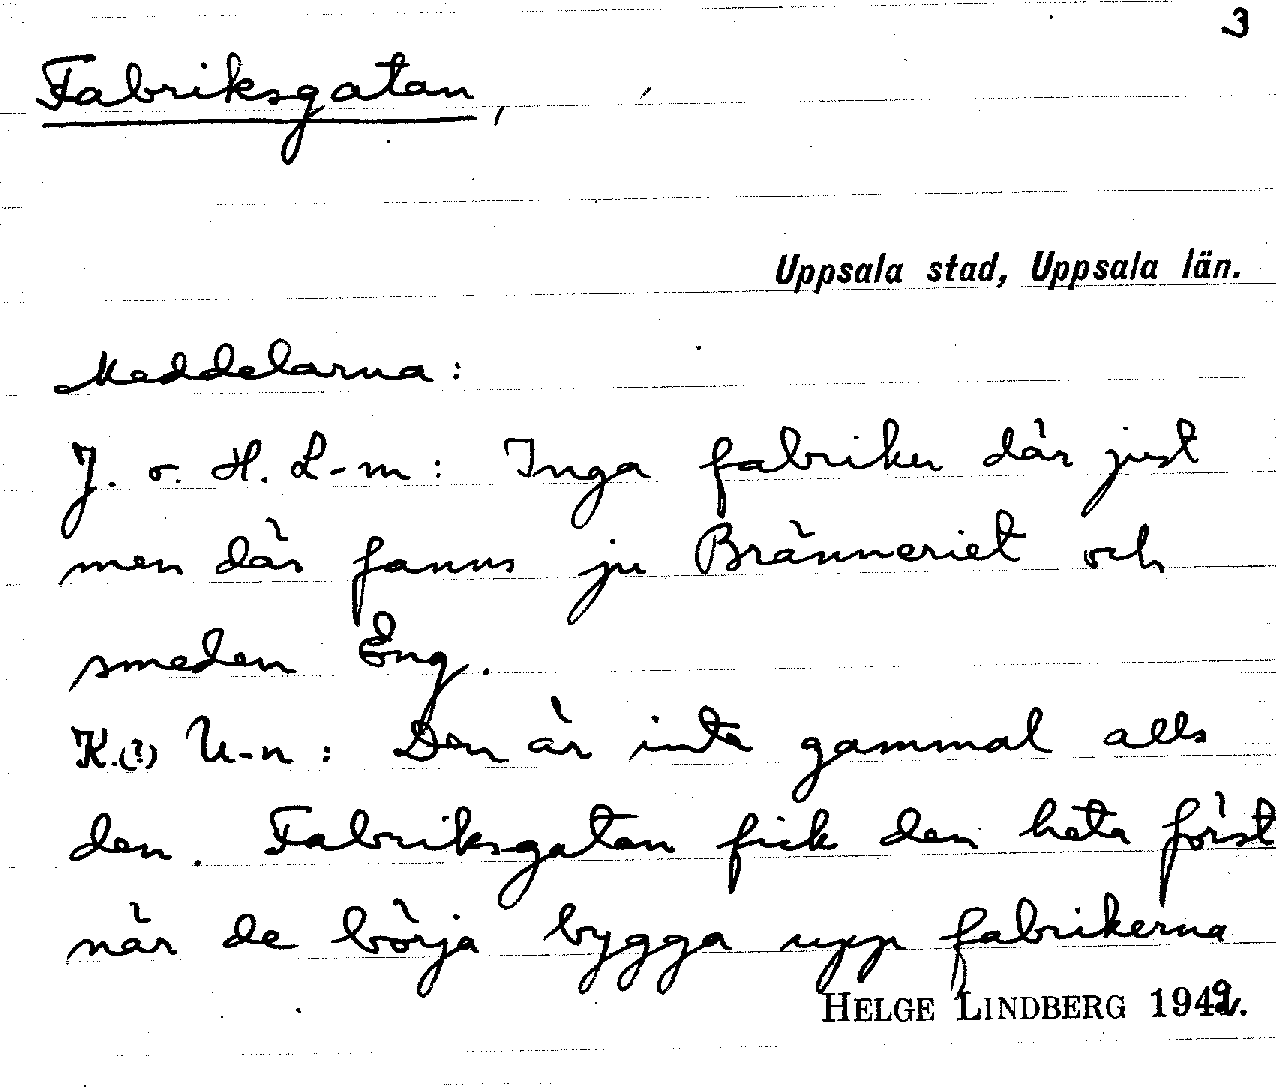 3
Fabriksgatan,
Uppsala stad, Uppsala län.
Meddelarna:
J. o. H. L-m: Inga fabriker där just
men där fanns ju Bränneriet och
smeden Eng.
K.(?) U-n: Den är inte gammal alls
den. Fabriksgatan fick den heta först
när de börja bygga upp fabrikerna
HELGE LINDBERG